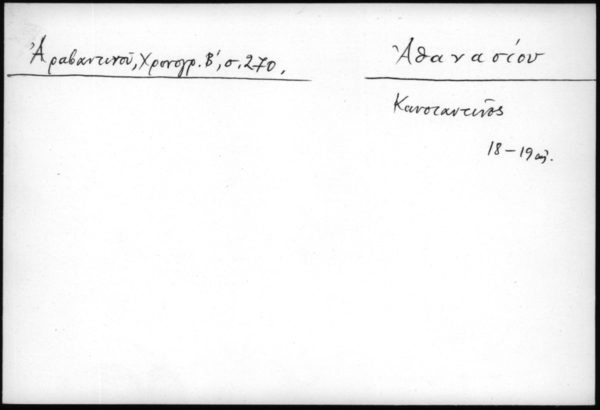 Ἀραβαντινοῦ, Χρονογρ. Β', σ. 270.
Ἀθανασίου
Κωνσταντῖνος
18-19 αἰ.